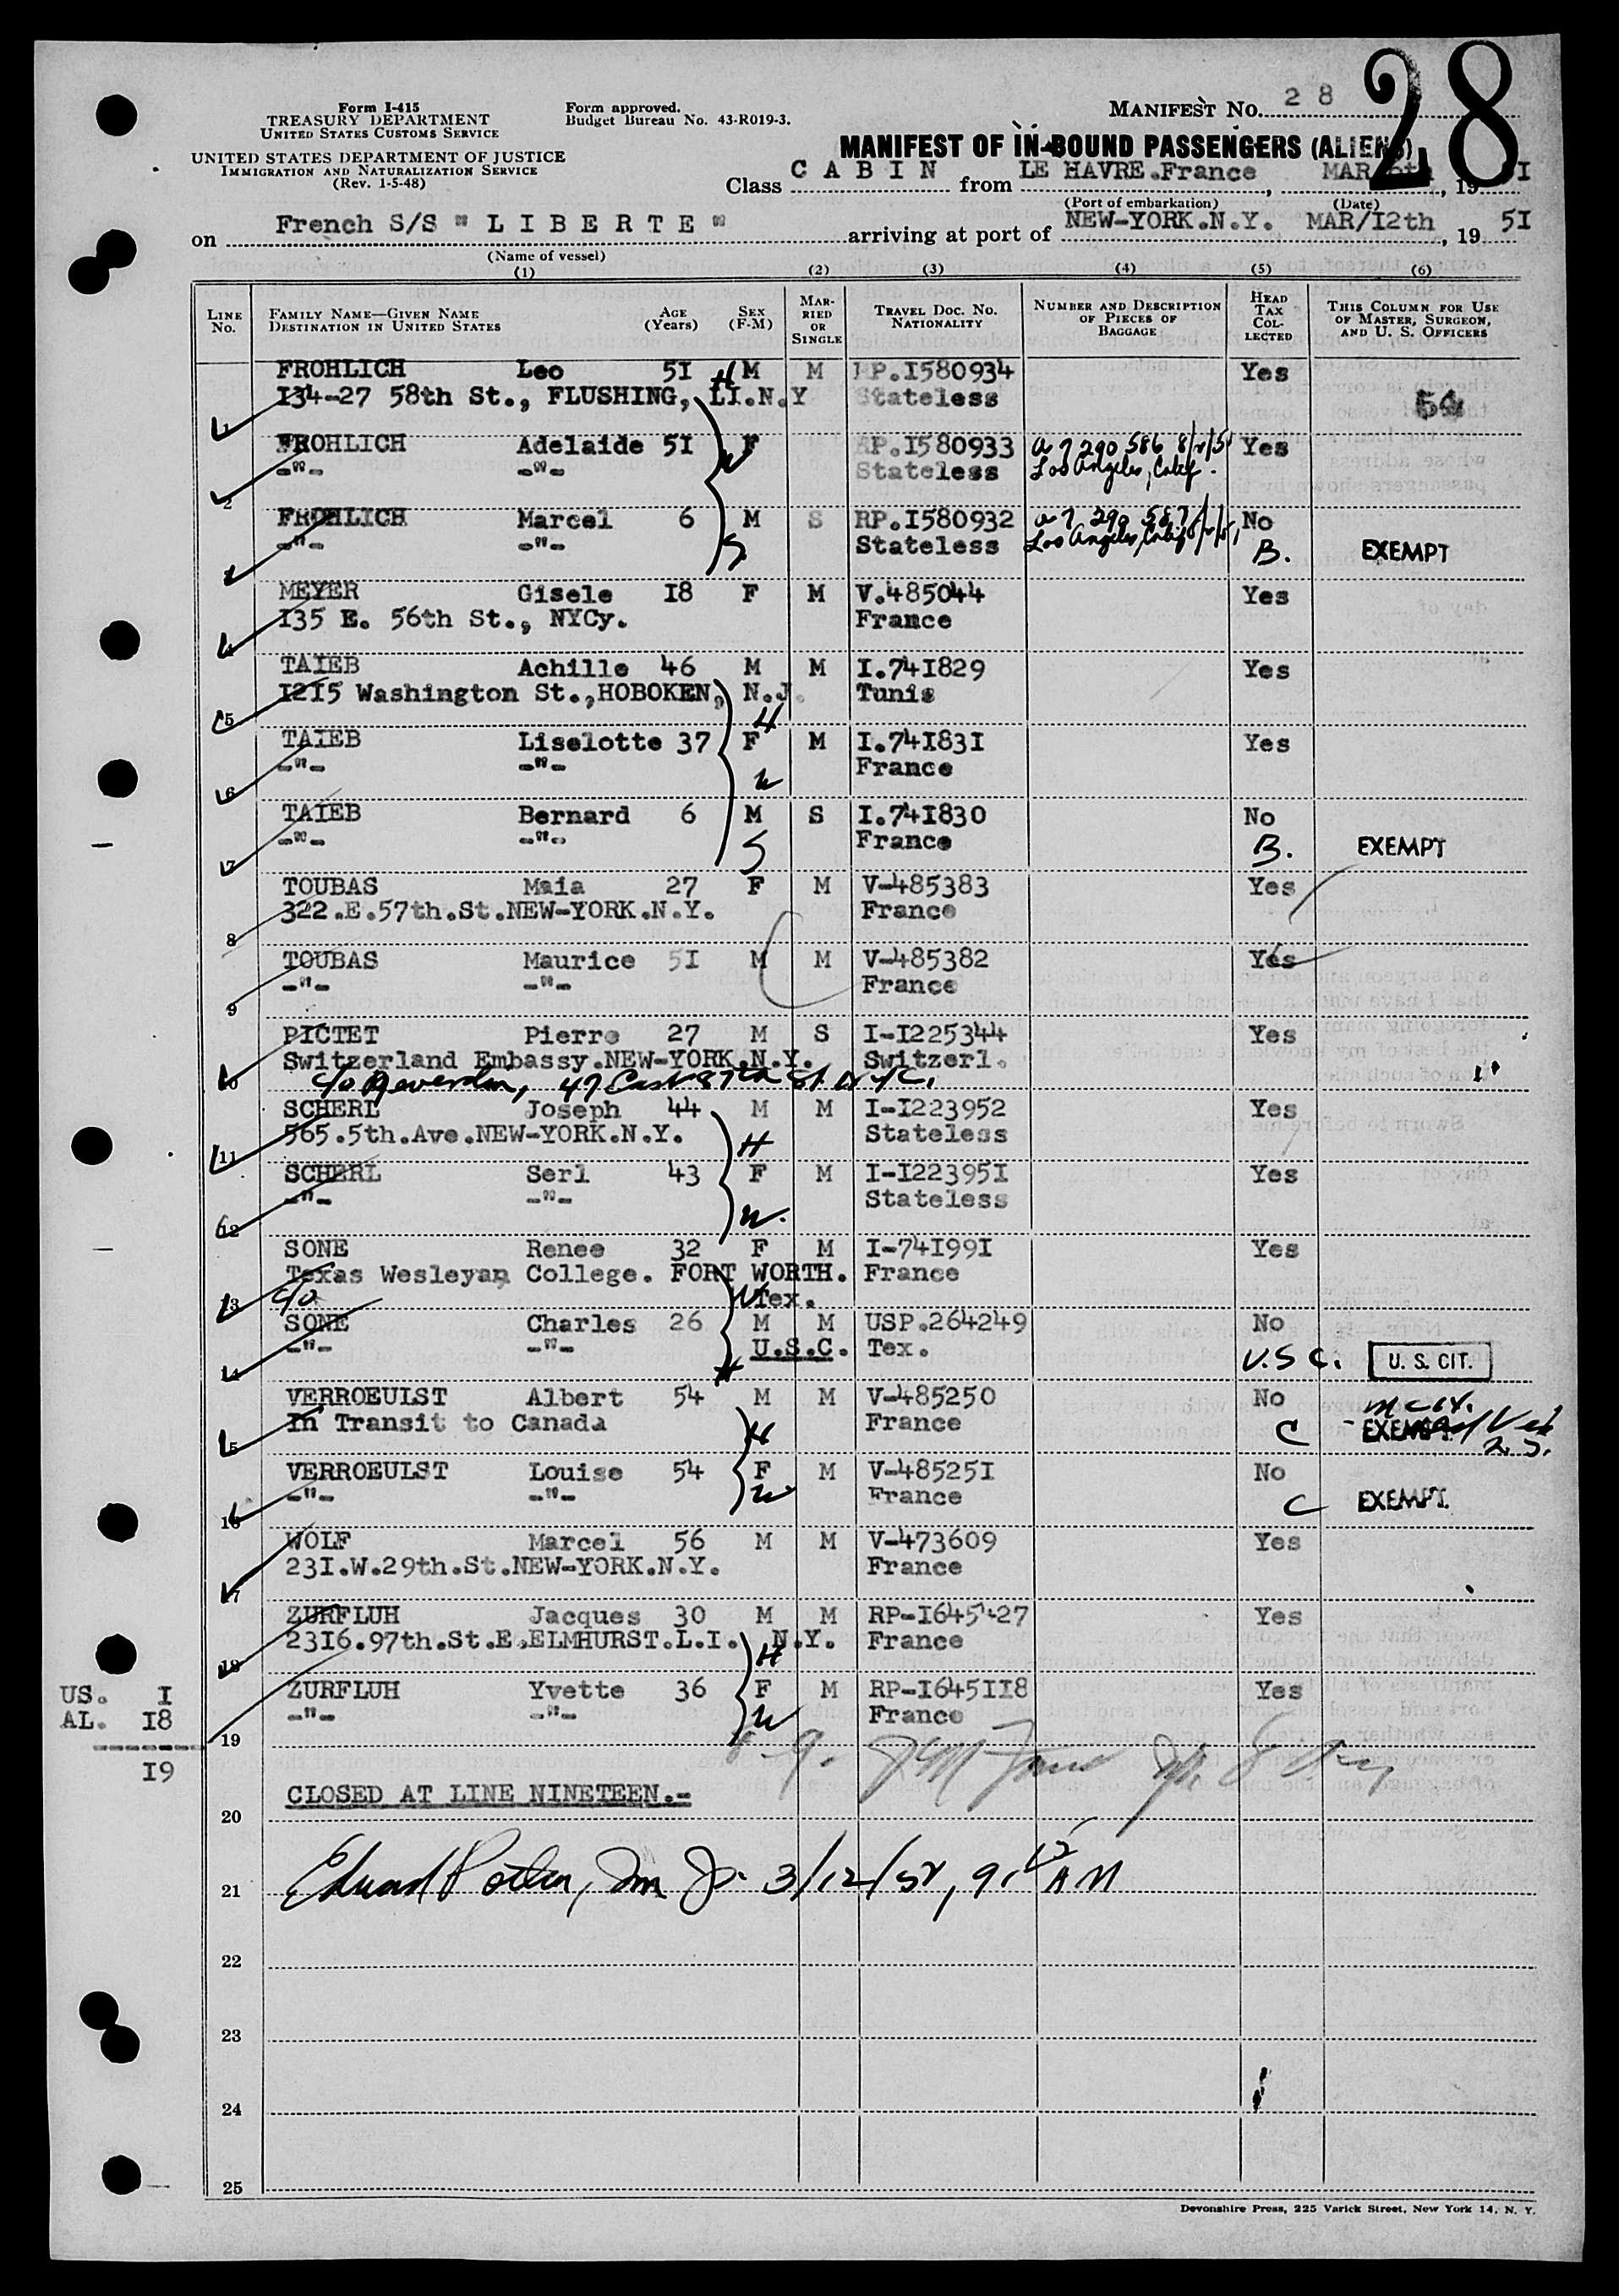 28
Form I-415
TREASURY DEPARTMENT
UNITED STATES CUSTOMS SERVICE
UNITED STATES DEPARTMENT OF JUSTICE
IMMIGRATION AND NATURALIZATION SERVICE
(Rev. 1-5-48)
Form approved.
Budget Bureau No. 43-R019-3.
MANIFEST No. 28
MANIFEST OF IN-BOUND PASSENGERS (ALIENS)
Class C A B I N from LE HAVRE.France, MAR, 19 I
(Port of embarkation) (Date)
on French S/S " L I B E R T E " arriving at port of NEW-YORK.N.Y. MAR/I2th, 19 5I
(Name of vessel)
(1) (2) (3) (4) (5) (6)
LINE No. FAMILY NAME—GIVEN NAME DESTINATION IN UNITED STATES AGE (Years) SEX (F-M) MARRIED OR SINGLE TRAVEL DOC. NO. NATIONALITY NUMBER AND DESCRIPTION OF PIECES OF BAGGAGE HEAD TAX COLLECTED THIS COLUMN FOR USE OF MASTER, SURGEON, AND U. S. OFFICERS
FROHLICH Leo 5I H M M RP.I580934 Yes
I34-27 58th St., FLUSHING, LI.N.Y Stateless
1
FROHLICH Adelaide 5I F RP.I580933 a 7 290 586 Yes
-"- -"- W Stateless Los Angeles, Calif.
2
FROHLICH Marcel 6 M S RP.I580932 a 7 290 587 No
-"- -"- S Stateless Los Angeles, Calif B. EXEMPT
MEYER Gisele I8 F M V.485044 Yes
I35 E. 56th St., NYCy. France
4
TAIEB Achille 46 M M I.74I829 Yes
I2I5 Washington St.,HOBOKEN, N.J. Tunis
5 H
TAIEB Liselotte 37 F M I.74I83I Yes
-"- -"- W France
6
TAIEB Bernard 6 M S I.74I830 No
-"- -"- S France B. EXEMPT
7
TOUBAS Maia 27 F M V-485383 Yes
322.E.57th.St.NEW-YORK.N.Y. France
8
TOUBAS Maurice 5I M M V-485382 Yes
-"- -"- France
9
PICTET Pierre 27 M S I-I225344 Yes
Switzerland Embassy.NEW-YORK.N.Y. Switzerl.
10 c/o 47 East 87th St. N.Y.C.
SCHERL Joseph 44 M M I-I223952 Yes
565.5th.Ave.NEW-YORK.N.Y. H Stateless
11
SCHERL Serl 43 F M I-I22395I Yes
-"- -"- W. Stateless
12
SONE Renee 32 F M I-74I99I Yes
Texas Wesleyan College. FORT WORTH. France
13 c/o W Tex.
SONE Charles 26 M M USP.264249 No
-"- -"- H U.S.C. Tex. U.S C. U. S. CIT.
14
VERROEUIST Albert 54 M M V-485250 No
In Transit to Canada H France C EXEMPT
15
VERROEULST Louise 54 F M V-48525I No
-"- -"- W France C EXEMPT.
16
WOLF Marcel 56 M M V-473609 Yes
23I.W.29th.St.NEW-YORK.N.Y. France
17
ZURFLUH Jacques 30 M M Yes
23I6.97th.St.E.ELMHURST.L.I. N.Y. France
18 H
ZURFLUH Yvette 36 F M RP-I645II8 Yes
-"- -"- W France
19
US. I
AL. I8
I9
CLOSED AT LINE NINETEEN.-
20
21 3/12/51, 9 AM
22
23
24
25
Devonshire Press, 225 Varick Street, New York 14, N. Y.